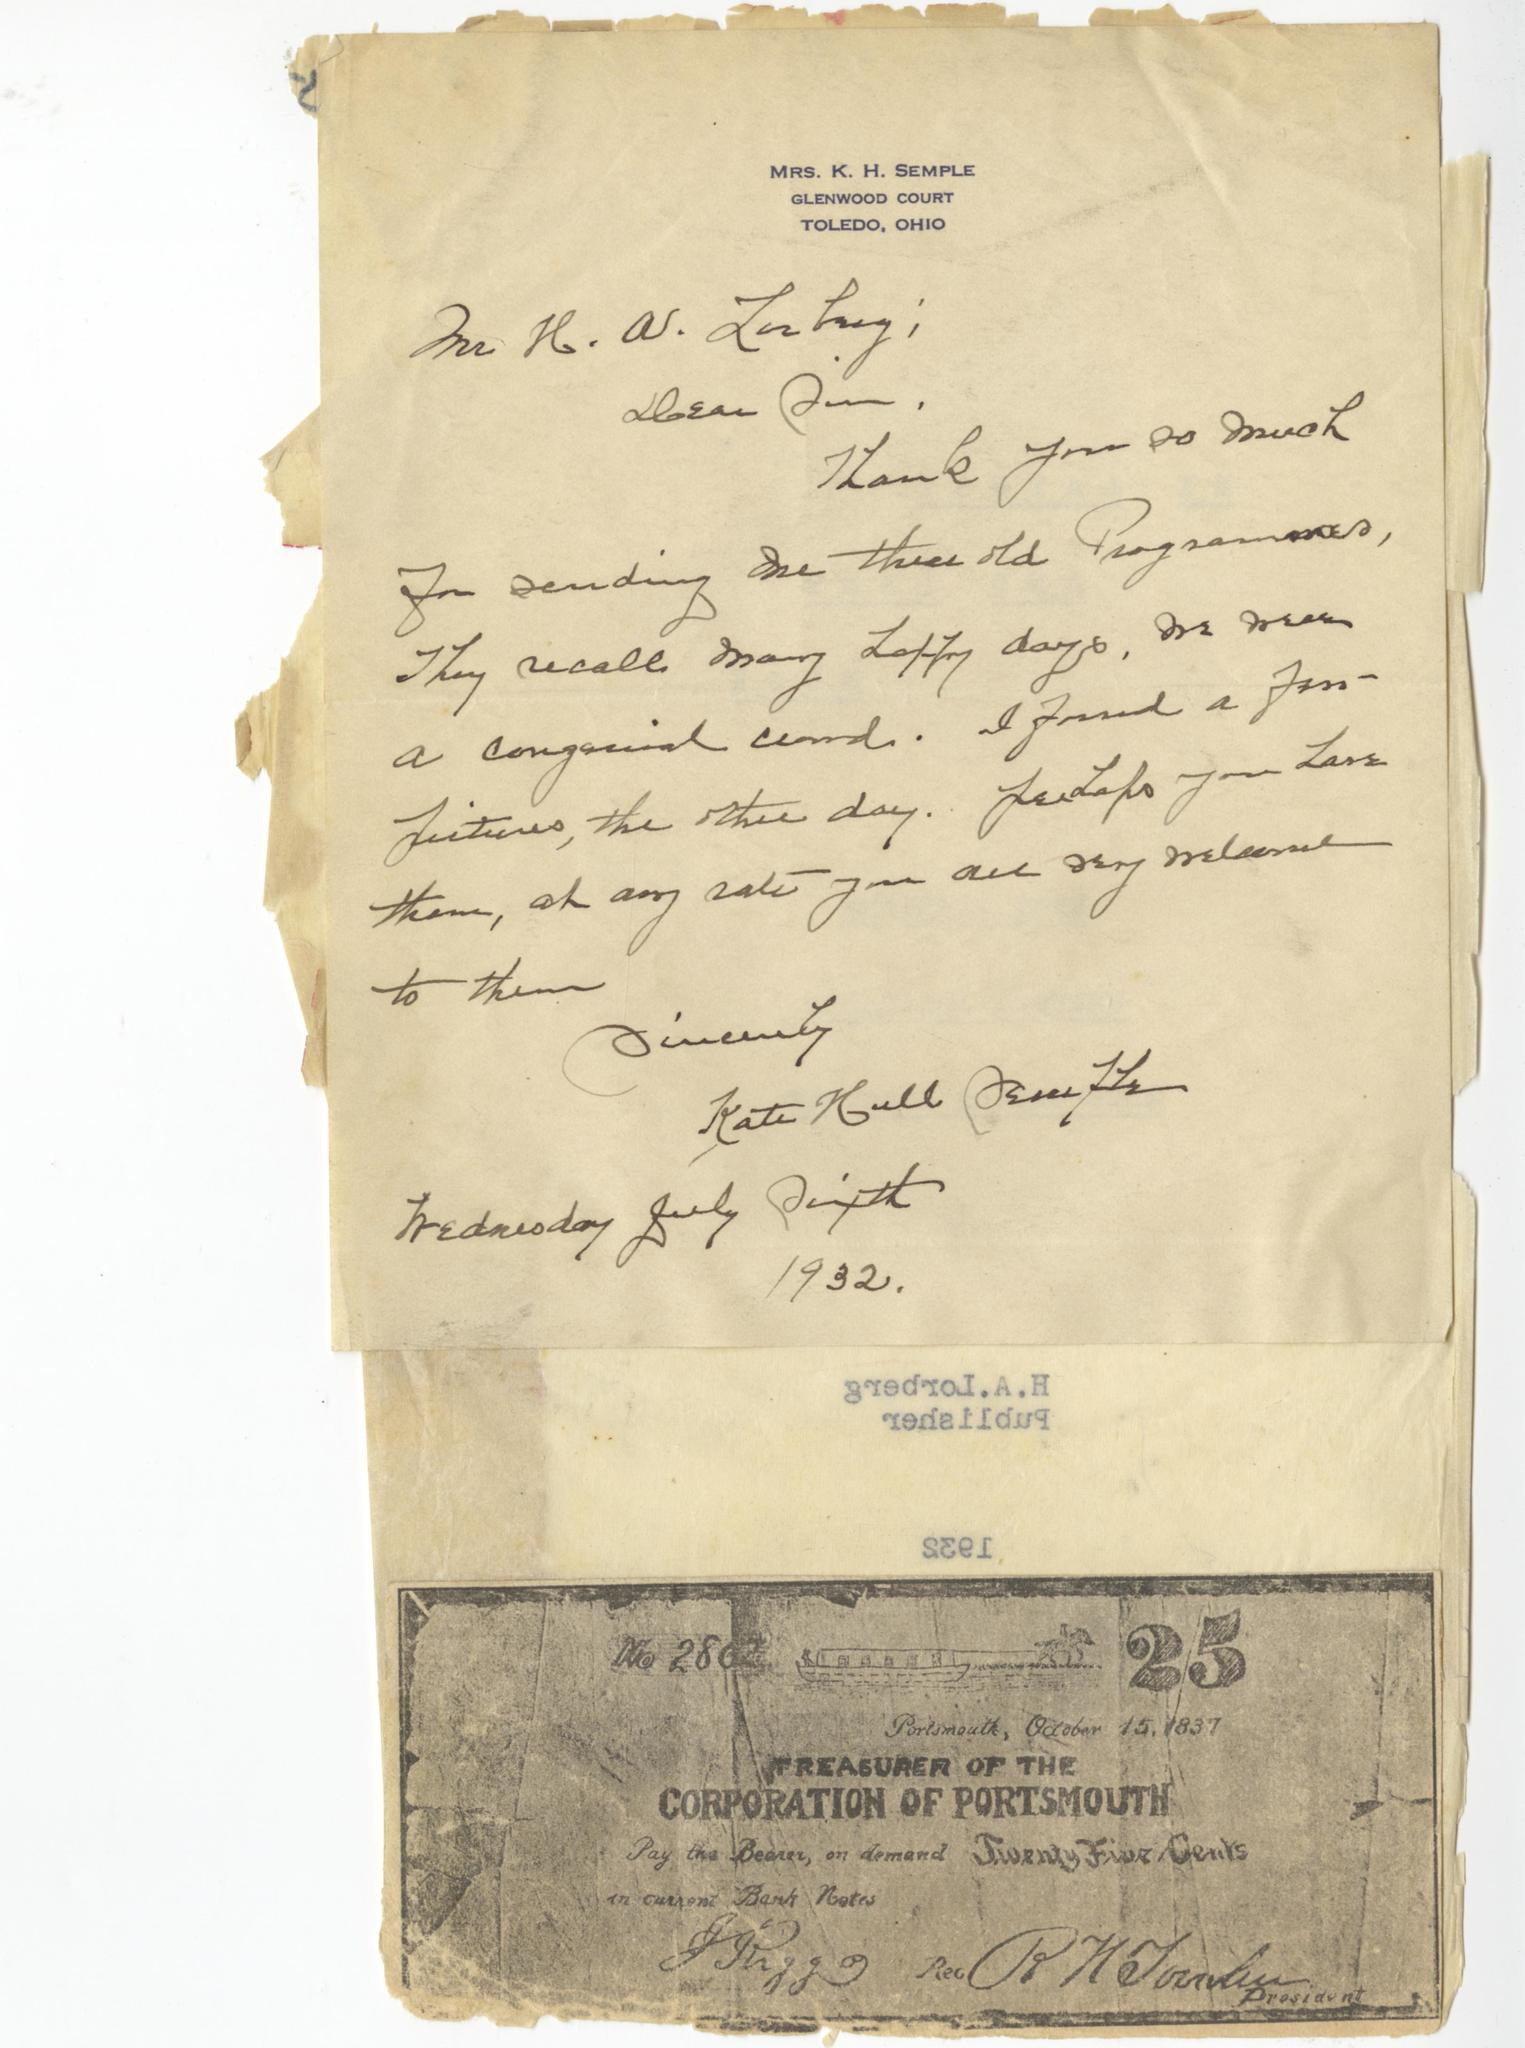 MRS. K. H. SEMPLE
GLENWOOD COURT
TOLEDO, OHIO
Mr H. A. Lorberg;
Dear Sir,
Thank you so much
for sending me these old Programmes,
They recall many happy days, we were
a congenial crowd. I found a few
pictures, the other day. perhaps you have
them, at any rate you are very welcome
to them
Sincerely
Kate Hull Semple
Wednesday July Sixth
1932.
H.A.Lorberg
Publisher
1932
No 2862 25
Portsmouth, October 15, 1837
TREASURER OF THE
CORPORATION OF PORTSMOUTH
Pay the Bearer, on demand Twenty Five Cents
in current Bank Notes
J Riggs Rec R H
President